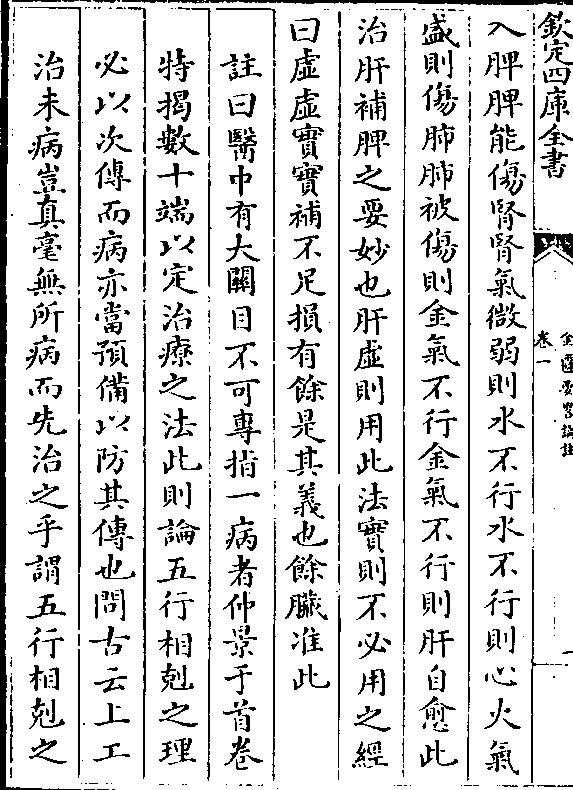 欽定四庫全書
金匱要畧論註
卷一
一
入脾脾能傷腎腎氣微弱則水不行水不行則心火氣
盛則傷肺肺被傷則金氣不行金氣不行則肝自愈此
治肝補脾之要妙也肝虛則用此法實則不必用之經
曰虛虛實實補不足損有餘是其義也餘臟准此
註曰醫中有大關目不可專指一病者仲景于首卷
特揭數十端以定治療之法此則論五行相剋之理
必以次傳而病亦當預備以防其傳也問古云上工
治未病豈真毫無所病而先治之乎謂五行相剋之